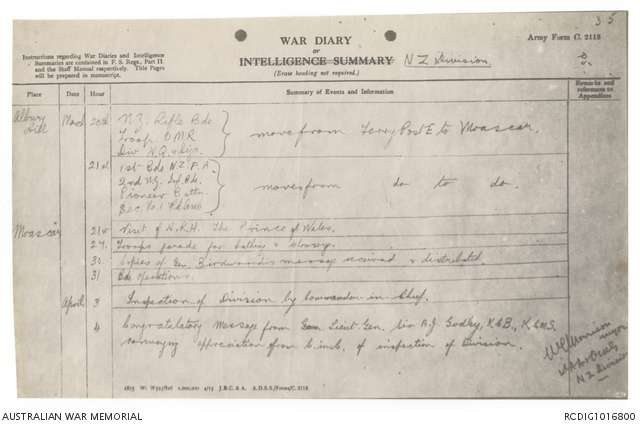 35
WAR DIARY
or
INTELLIGENCE SUMMARY
(Erase heading not required.)
N Z Division
Army Form C. 2118
Instructions regarding War Diaries and Intelligence
Summaries are contained in F. S. Regs., Part II
and the Staff Manual respectively. Title Pages
will be prepared in manuscript.
Place Date Hour Summary of Events and Information Remarks and references to Appendices
March 20th N.Z. Rifle Bde.
Troop O.M.R
Div H.Q. & Sigs.
moves from Ferry Post E to Moascar.
21st 1st Bde N.Z.F.A.
2nd N.Z. Inf. Bde.
Pioneer Battn.
Sec. No. 1
moves from do to do.
Moascar 21st Visit of H.R.H. The Prince of Wales.
27. Troops parade for bathing &
30 Copies of Gen. Birdwood's message received & distributed.
31 Bde operations.
April 3 Inspection of Division by Commander in Chief.
4 Congratulatory message from Lieut Gen. Sir A.J. Godley, K.C.B., K.C.M.G.
conveying appreciation from C.inC. of inspection of Division.
Major
N Z Division
J.B.C. & A. A.D.S.S./Forms/C. 2118
AUSTRALIAN WAR MEMORIAL
RCDIG1016800